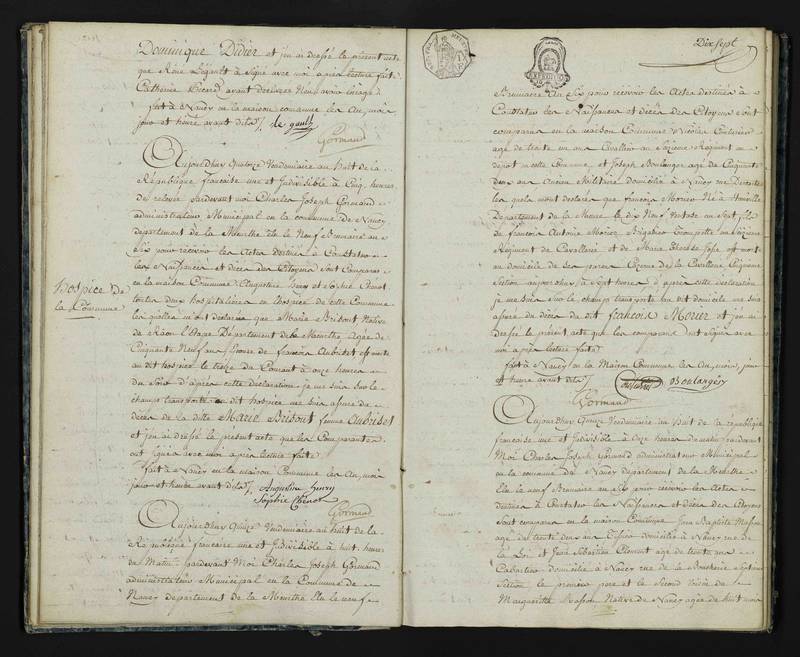 Dominique Didier et j'en ai dressé le présent acte
que René Légault à signe avec moi après lecture faite
Catherine Picard ayant declarez
fait à Nancy en la maison commune les An, mois
jour et heure avant dits /. le gault
Gormand
Aujourdhuy Quatorze Vendemiaire an huit de la
République francoise une et Indivisible à Cinq heures
de relevée pardevant moi Charles Joseph Gormand
administrateur Municipal en la commune de Nancy
departement de la Meurthe élu le neuf Brumaire an
Six pour recevoir les Actes destinés à Constater
les Naissances et décès des Citoyens sont comparus
en la maison Commune Augustine Henry et Sophie Chenot
toutes deux hospitalières en hospice de cette Commune
les quelles m'ont déclarée que Marie Brisout, Native
de Département de la Meurthe, Agée de
Cinquante Neuf ans femme de francois Aubridet est morte
au dit hospice le treize du Courant à onze heures
du Soir d'après cette déclaration je me suis sur le
champ transporté au dit hospice me suis assuré du
décès de la ditte Marie Brisout femme Aubridet
et j'en ai dressé le présent acte que les Comparantes
ont signés avec moi après lecture faite
fait à Nancy en la maison Commune les An, mois
jour et heure avant dits /. Augustine henry
Sophie Chenot
Gormand
Hospice de
la Commune
Aujourdhuy Quinze Vendemiaire an huit de la
République francaise une et Indivisible à huit heures
du Matin pardevant Moi Charles Joseph Gormand
administrateur Municipal en la Commune de
Nancy Departement de la Meurthe Elu le neuf
Dix Sept
Brumaire an Six pour recevoir les Actes destinés à
Constater les Naissances et décès des Citoyens sont
comparus en la maison Commune Nicolas
agé de trente un ans Cavallier au Régiment en
depot en cette Commune et Joseph Boulanger agé de Cinquante
deux ans Ancien Militaire domicilié à Nancy rue
les quels mont déclarés que francois Morier Né à
Departement de la Meuse le dix Neuf Ventose an Sept fils
de francois Antoine Morier, Brigadier Trompette au
Régiment de Cavallerie et de Marie est mort
au domicile de ses peres Cazerne de la Cavallerie Cinquieme
Section aujourdhuy à Sept heures d'apres cette déclaration
je me suis sur le champ transporté au dit domicile me suis
assuré du décès du dit francois Morier et j'en ai
dressé le présent acte que les comparans ont signés avec
moi après lecture faite
fait à Nancy en la Maison Commune les An, mois, jour
et heure avant dits / Boulanger
Gormand
Aujourdhuy Quinze Vendemiaire an huit de la république
francoise une et Indivisible à onze heures du matin pardevant
Moi Charles Joseph Gormand administrateur Municipal
en la commune de Nancy departement de la Meurthe
Elu le neuf Brumaire an Six pour recevoir les Actes
destinés à Constater les Naissances et décès des Citoyens
Sont comparus en la maison Commune Jean Baptiste Masson
agé de trente deux ans domicilié à Nancy rue de
la Loi et Jean Sebastien Clement agé de trente ans
Cabartier domicilié à Nancy rue de la Boucherie
Section le premier pere et le Second Voisin de
Margueritte Masson Native de Nancy agée de huit mois